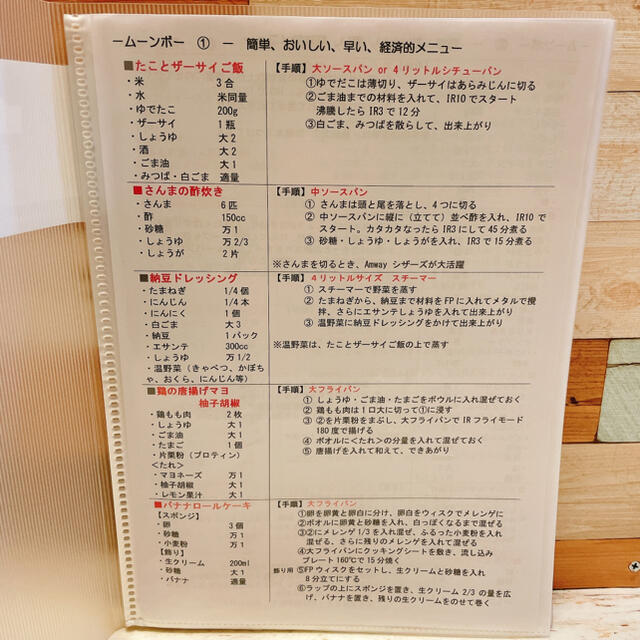 －ムーンボー ① － 簡単、おいしい、早い、経済的メニュー
■たことザーサイご飯
・米 3合
・水 米同量
・ゆでたこ 200g
・ザーサイ 1瓶
・しょうゆ 大2
・酒 大2
・ごま油 大1
・みつば・白ごま 適量
【手順】大ソースパン or 4リットルシチューパン
①ゆでだこは薄切り、ザーサイはあらみじんに切る
②ごま油までの材料を入れて、IR10でスタート
沸騰したらIR3で12分
③白ごま、みつばを散らして、出来上がり
■さんまの酢炊き
・さんま 6匹
・酢 150cc
・砂糖 万1
・しょうゆ 万2/3
・しょうが 2片
【手順】中ソースパン
① さんまは頭と尾を落とし、4つに切る
② 中ソースパンに縦に（立てて）並べ酢を入れ、IR10で
スタート。カタカタなったらIR3にして45分煮る
③ 砂糖・しょうゆ・しょうがを入れ、IR3で15分煮る
※さんまを切るとき、Amway シザーズが大活躍
■納豆ドレッシング
・たまねぎ 1/4個
・にんじん 1/4本
・にんにく 1個
・白ごま 大3
・納豆 1パック
・エサンテ 300cc
・しょうゆ 万1/2
・温野菜（きゃべつ、かぼち
ゃ、おくら、にんじん等）
【手順】4リットルサイズ スチーマー
① スチーマーで野菜を蒸す
② たまねぎから、納豆まで材料をFPに入れてメタルで攪
拌、さらにエサンテしょうゆを入れて出来上がり
③ 温野菜に納豆ドレッシングをかけて出来上がり
※温野菜は、たことザーサイご飯の上で蒸す
■鶏の唐揚げマヨ
柚子胡椒
・鶏もも肉 2枚
・しょうゆ 大1
・ごま油 大1
・たまご 1個
・片栗粉（プロティン）
＜たれ＞
・マヨネーズ 万1
・柚子胡椒 大1
・レモン果汁 大1
【手順】大フライパン
① しょうゆ・ごま油・たまごをボウルに入れ混ぜておく
② 鶏もも肉は1口大に切って①に浸す
③ ②を片栗粉をまぶし、大フライパンでIRフライモード
180度で揚げる
④ ボオルに＜たれ＞の分量を入れて混ぜておく
⑤ 唐揚げを入れて和えて、できあがり
■バナナロールケーキ
【スポンジ】
・卵 3個
・砂糖 万1
・小麦粉 万1
【飾り】
・生クリーム 200ml
・砂糖 大1
・バナナ 適量
【手順】大フライパン
①卵を卵黄と卵白に分け、卵白をウィスクでメレンゲに
②ボオルに卵黄と砂糖を入れ、白っぽくなるまで混ぜる
③②にメレンゲ1/3を入れ混ぜ、ふるった小麦粉を入れ
混ぜる、さらに残りのメレンゲを入れて混ぜる
④大フライパンにクッキングシートを敷き、流し込み
プレート160℃で15分焼く
飾り用 ⑤FPウィスクをセットし、生クリームと砂糖を入れ
8分立てにする
⑥ラップの上にスポンジを置き、生クリーム2/3の量を広
げ、バナナを置き、残りの生クリームをのせて巻く